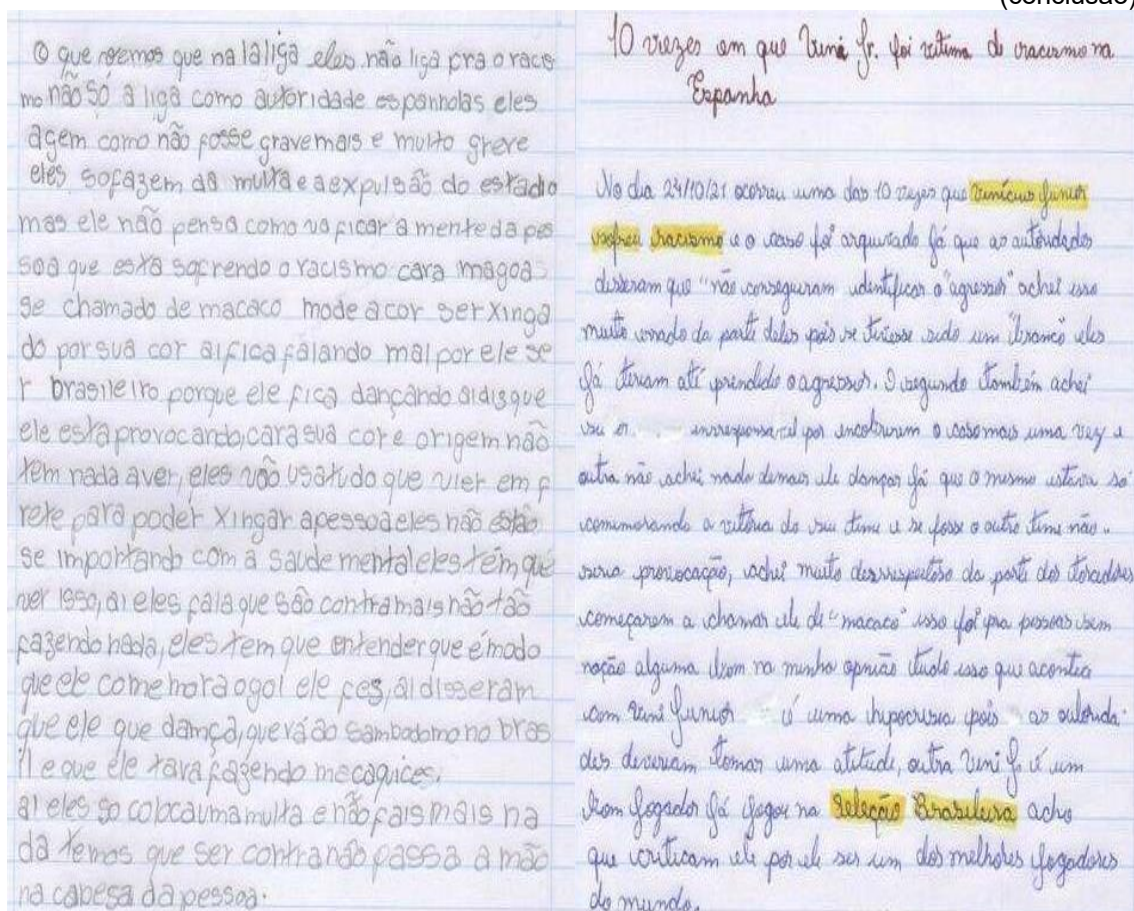 (conclusão)
O que vemos que na laliga eles não liga pra o racis
mo não só a liga como autoridade espanholas eles
agem como não fosse grave mais e muito greve
eles so fazem da multa e a expulsão do estadio
mas ele não pensa como va ficar a mente da pes
soa que esta sofrendo o racismo cara magoa
se chamado de macaco mode a cor ser xinga
do por sua cor ai fica falando mal por ele se
r brasileiro porque ele fica dançando ai dis que
ele esta provocando, cara sua cor e origem não
tem nada aver, eles vão usa tudo que vier em f
rete para poder xingar a pessoa eles não estão
se importando com a saude mental eles têm que
ver isso, ai eles fala que são contra mais não tão
fazendo nada, eles tem que entender que é modo
que ele comemora o gol ele fes, ai disseram
que ele que damça, que vá ao sambodomo no bras
il e que ele tava fazendo macaquices.
ai eles so coloca uma multa e não fais mais na
da temos que ser contra não passa a mão
na cabesa da pessoa.
10 vezes em que Vini Jr. foi vitima de racismo na
Espanha
No dia 24/10/21 ocorreu uma das 10 vezes que Vinícius Junior
sofreu racismo e o caso foi arquivado já que as autoridades
disseram que "não conseguiram identificar o "agressor" achei isso
muito errado da parte deles pois se tivesse sido um "branco" eles
já teriam até prendido o agressor. O segundo também achei
irresponsável por encobrirem o caso mais uma vez e
outra não achei nada demais ele dançar já que o mesmo estava só
comemorando a vitória do seu time e se fosse o outro time não
seria provocação, achei muito desrespeitoso da parte dos torcedores
começarem a chamar ele de "macaco" isso foi pra pessoas sem
noção alguma bom na minha opinião tudo isso que acontece
com Vini Junior é uma hipocrisia pois as autorida-
des deveriam tomar uma atitude, outra Vini Jr é um
bom jogador já jogou na Seleção Brasileira acho
que criticam ele por ele ser um dos melhores jogadores
do mundo.